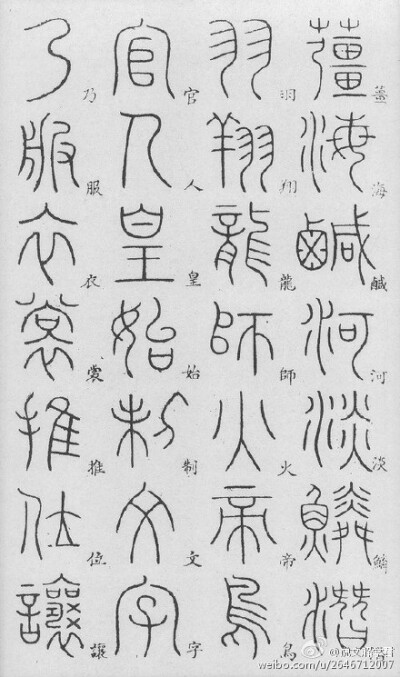 薑海鹹河淡鱗潛
羽翔龍師火帝鳥
官人皇始制文字
乃服衣裳推位讓
weibo.com/u/2646712007